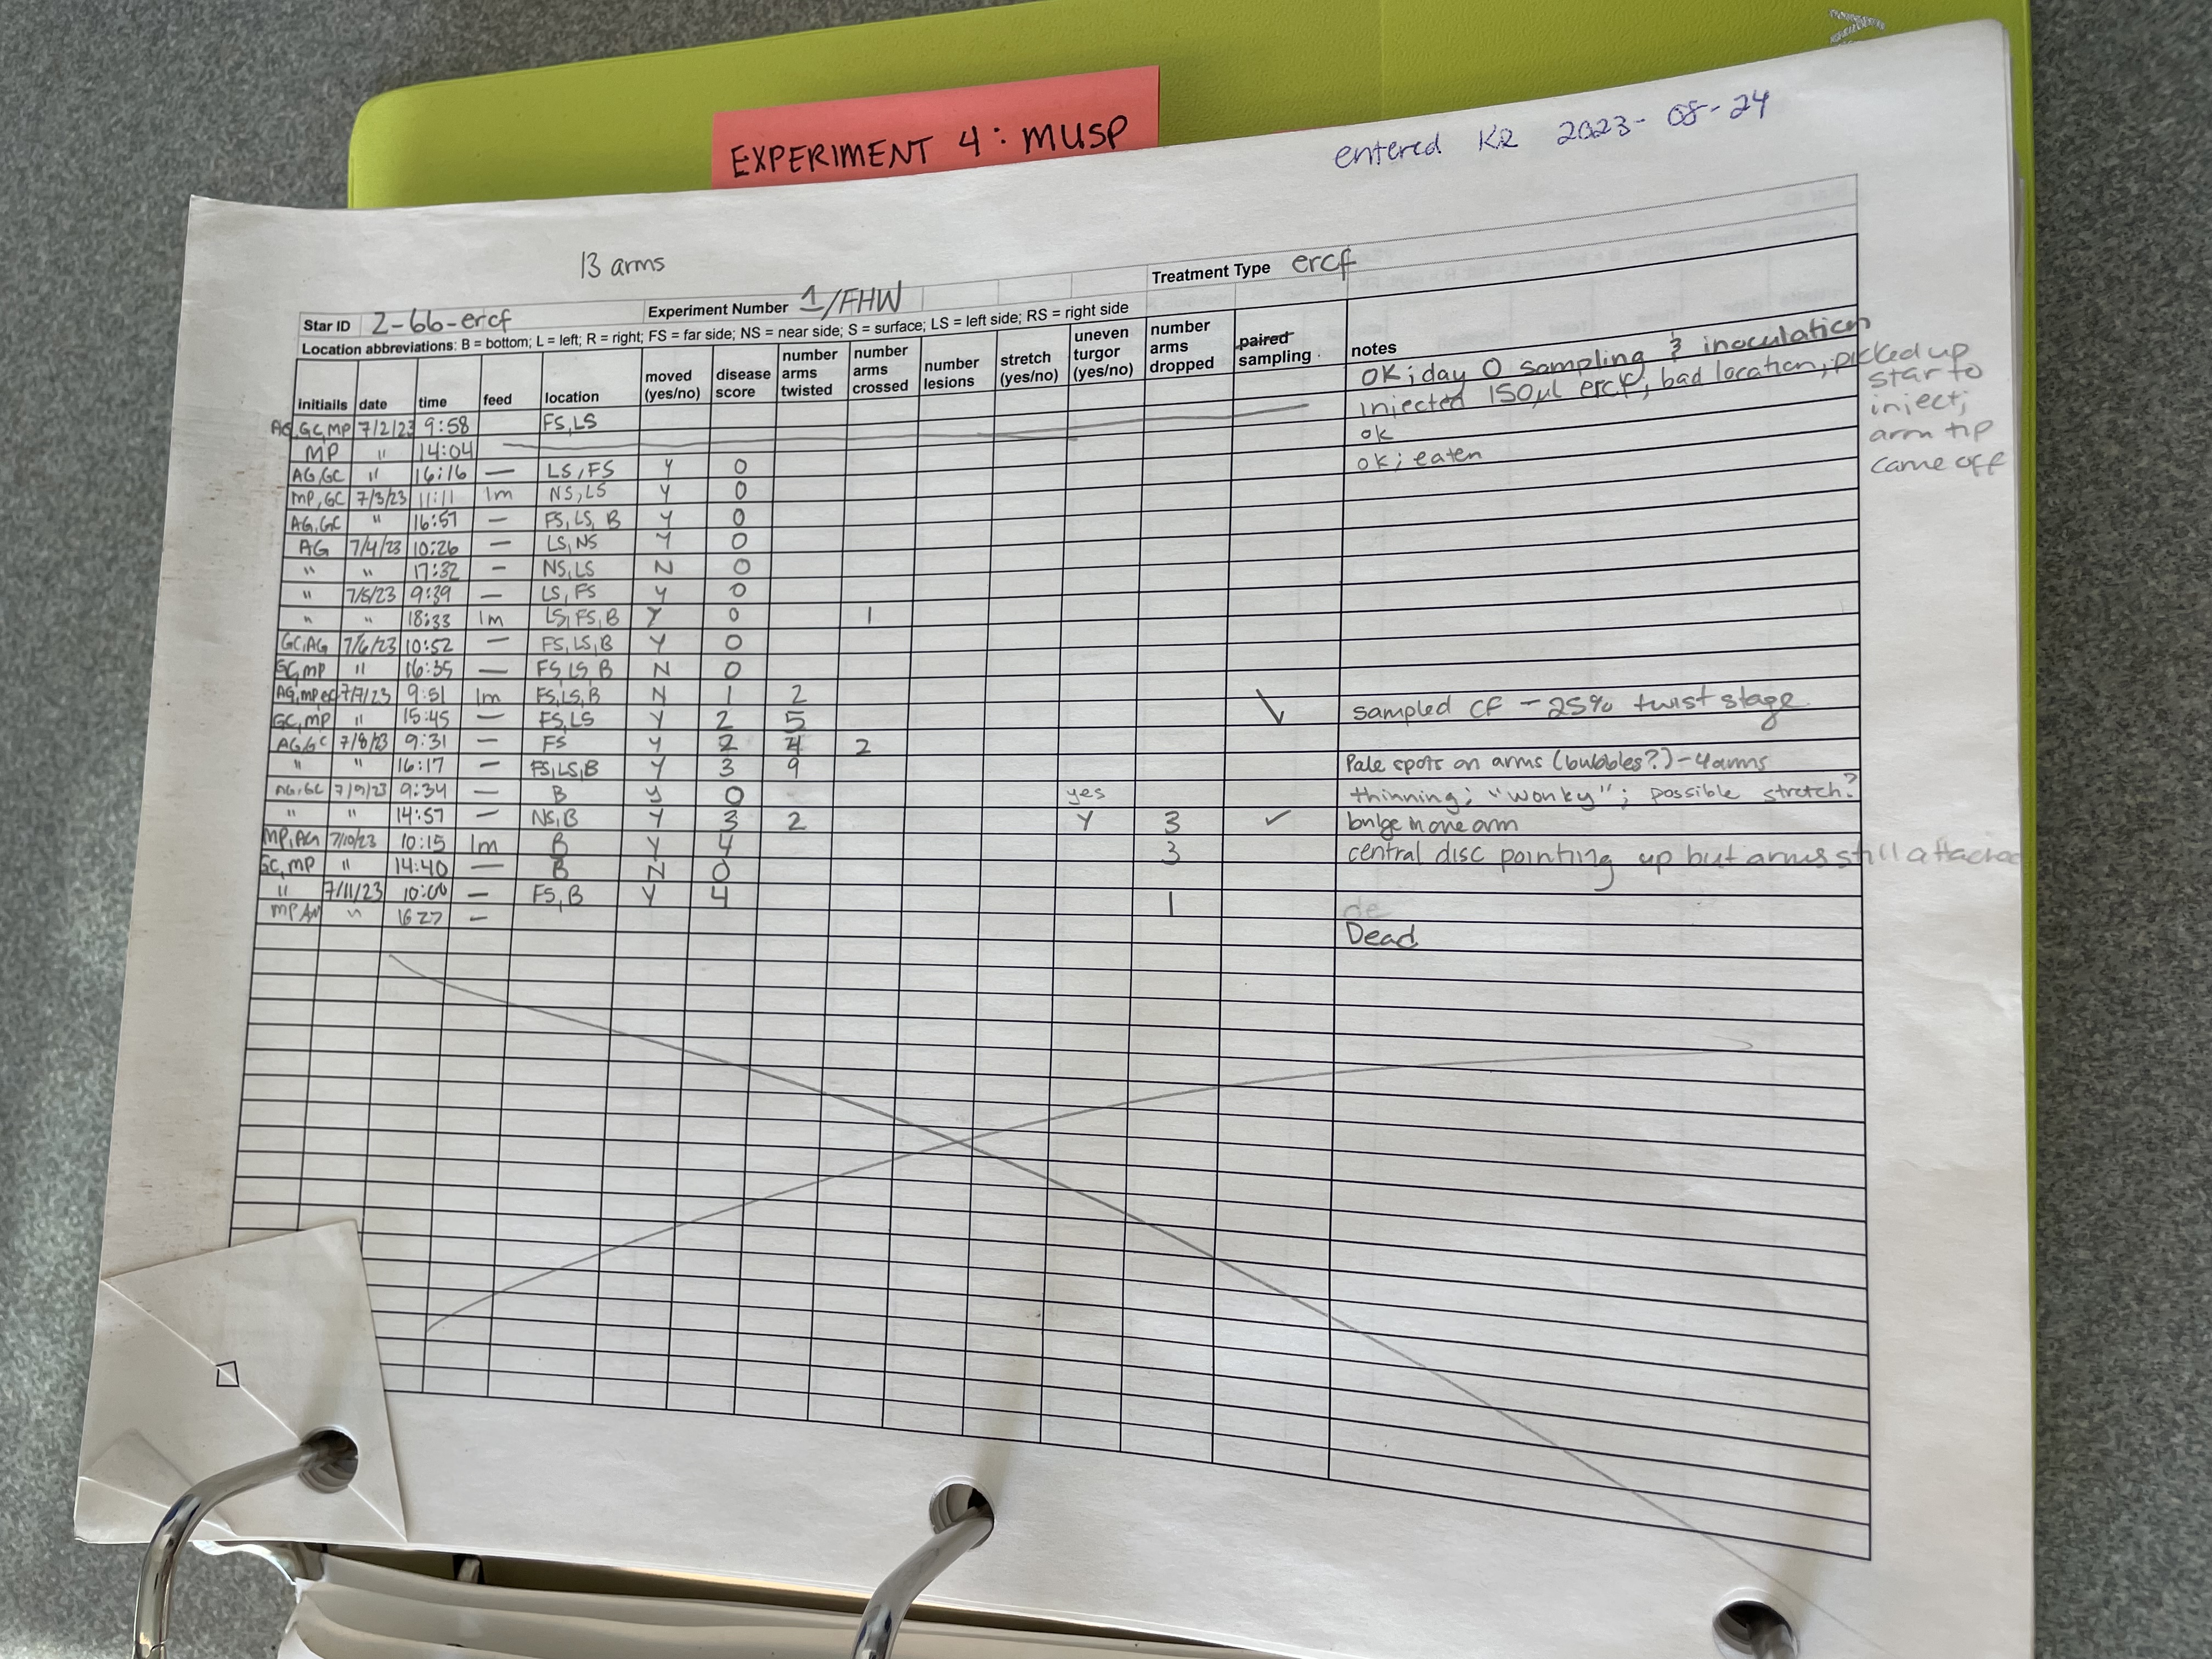 EXPERIMENT 4: MUSP
entered KR 2023-08-24
13 arms
Star ID 2-66-ercf Experiment Number 1/FHW Treatment Type ercf
Location abbreviations: B = bottom; L = left; R = right; FS = far side; NS = near side; S = surface; LS = left side; RS = right side
initials date time feed location moved (yes/no) disease score number arms twisted number arms crossed number lesions stretch (yes/no) uneven turgor (yes/no) number arms dropped paired sampling notes
AG, GC, MP 7/2/23 9:58 FS, LS OK; day 0 sampling & inoculation
MP " 14:04 injected 150µl ercf, bad location; picked up star to inject; arm tip came off
AG, GC " 16:16 — LS, FS Y 0 ok
MP, GC 7/3/23 11:11 1m NS, LS Y 0 ok; eaten
AG, GC " 16:57 — FS, LS, B Y 0
AG 7/4/23 10:26 — LS, NS Y 0
" " 17:32 — NS, LS N 0
" 7/5/23 9:39 — LS, FS Y 0
" " 18:33 1m LS, FS, B Y 0 1
GC, AG 7/6/23 10:52 — FS, LS, B Y 0
GC, MP " 16:35 — FS, LS, B N 0
AG, MP, 7/7/23 9:51 1m FS, LS, B N 1 2
GC, MP " 15:45 — FS, LS Y 2 5 sampled CF - 25% twist stage
AG, GC 7/8/23 9:31 — FS Y 2 4 2
" " 16:17 — FS, LS, B Y 3 9 Pale spots on arms (bubbles?) - 4 arms
AG, GC 7/9/23 9:34 — B Y 0 yes thinning; "wonky"; possible stretch?
" " 14:57 — NS, B Y 3 2 Y 3 ✓ bulge in one arm
MP, AG 7/10/23 10:15 1m B Y 4 3 central disc pointing up but arms still attached
GC, MP " 14:40 — B N 0
" 7/11/23 10:00 — FS, B Y 4 1 de
MP " 16 27 — Dead